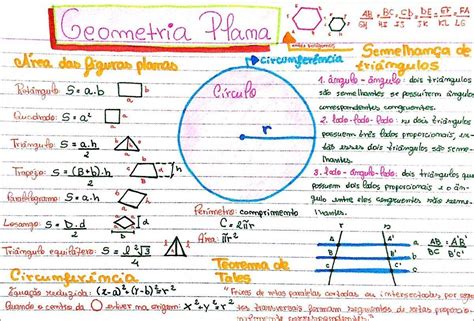 Geometria Plana
AB = BC = CD = DE = EF = FA
GH HI IJ JK KL LG
Área das figuras planas
Retângulo S = a.b
a
b
Quadrado S = a²
a
a
Triângulo: S = a.h
2
h
a
Trapézio: S = (B+b).h
2
b
h
B
Paralelogramo S = a.h
b
h
a
Losango: S = D.d
2
D
d
Triângulo equilátero: S = l²√3
4
l
l
Circunferência
Círculo
r
Perímetro: comprimento
C = 2πr
Área: πr²
Semelhança de
triângulos
1. ângulo - ângulo: dois triângulos
são semelhantes se possuírem ângulos
correspondentes congruentes.
2. lado-lado-lado: se dois triângulos
possuem três lados proporcionais, en-
tão esses dois triângulos são seme-
lhantes.
3. lado-ângulo-lado: dois triângulos que
possuem dois lados proporcionais e o ân-
gulo entre eles congruentes são seme-
lhantes.
r
r'
A
A'
a
B
B'
b
C
C'
c
AB = A'B'
BC B'C'
Circunferência
Equação reduzida: (x-a)²+(y-b)²=r²
Quando o centro da
estiver na origem: x²+y²=r²
Teorema de
Tales
"Feixes de retas paralelas cortadas ou interseccionadas por segmen-
tos transversais formam segmentos de retas proporcio-
nalmente correspondentes"